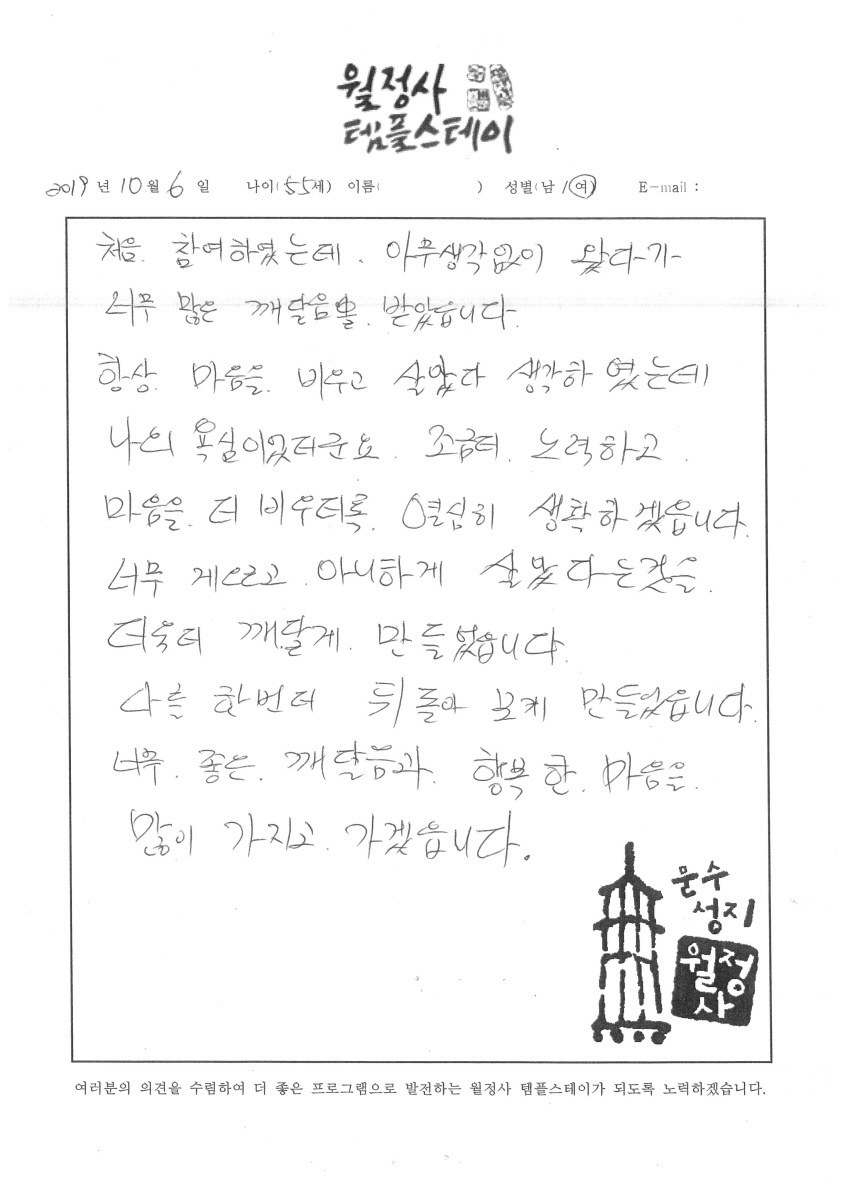 월정사
템플스테이
2019 년 10 월 6 일 나이(55세) 이름( ) 성별(남 / 여) E-mail :
처음. 참여하였는데. 아무생각없이 왔다가
너무 많은 깨달음을. 받았읍니다.
항상. 마음을. 비우고 살았다 생각하였는데
나의 욕심이었더군요. 조금더. 노력하고.
마음을. 더 비우더록. 열심히 생활하겠읍니다.
너무 게으르고. 아니하게 살았다는것을.
더욱더 깨닫게. 만들었읍니다.
다를 한번더 뒤돌아 보게 만들었읍니다.
너무. 좋은. 깨달음과. 행복한. 마음을.
많이 가지고. 가겠읍니다.
문수
성지
월정
사
여러분의 의견을 수렴하여 더 좋은 프로그램으로 발전하는 월정사 템플스테이가 되도록 노력하겠습니다.